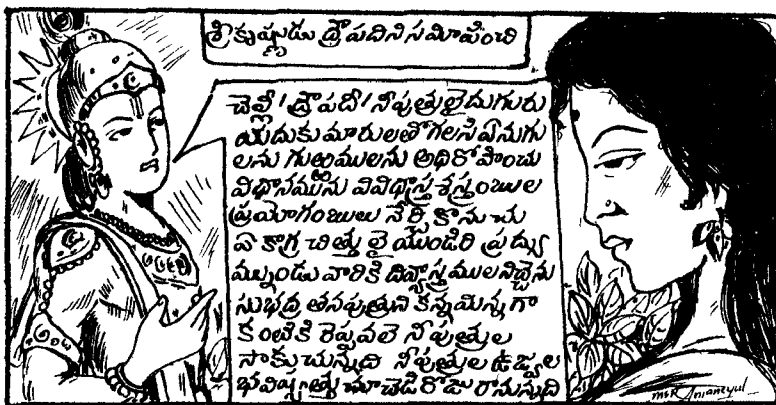 శ్రీకృష్ణుడు ద్రౌపదిని సమీపించి
చెల్లీ! ద్రౌపదీ! నీపుత్రులైదుగురు
యదుకుమారులతోగలసి ఏనుగు
లను గుఱ్ఱములను అధిరోహించు
విధానమును వివిధాస్త్ర శస్త్రంబుల
ప్రయోగంబులు నేర్చుకొనుచు
ఏకాగ్ర చిత్తులైయుండిరి ప్రద్యు
మ్నుండు వారికి దివ్యాస్త్రములనిచ్చెను
సుభద్ర తనపుత్రుని కన్నమిన్నగా
కంటికి రెప్పవలె నీపుత్రుల
సాకుచున్నది నీపుత్రుల ఉజ్వల
భవిష్యత్తు చూచెడిరోజు రానున్నది
MSR Anjaneyul